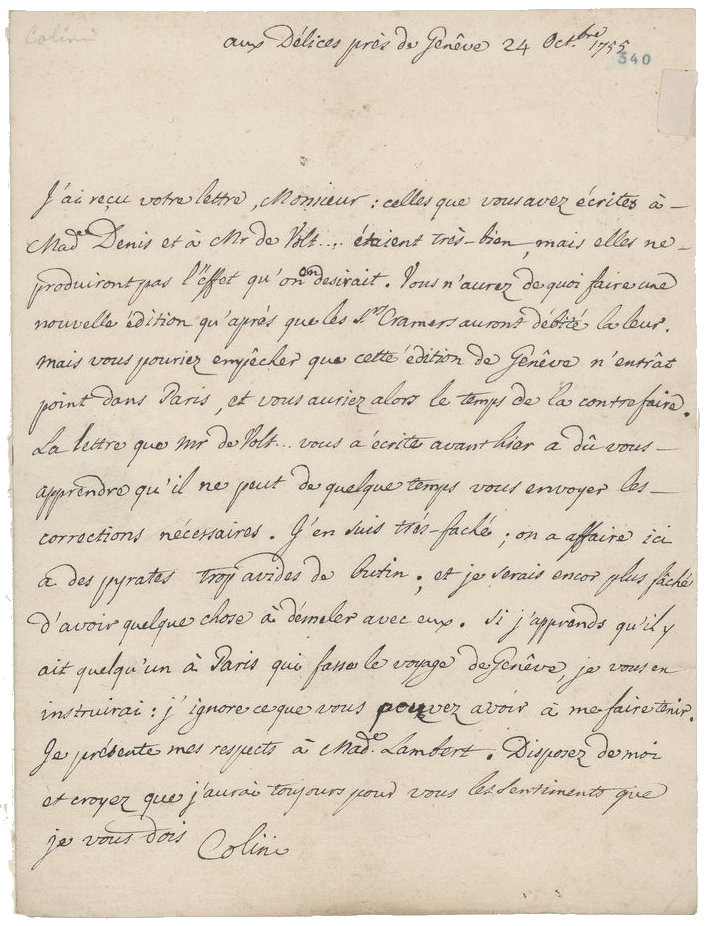 Colini
aux Délices près de Genêve 24 Oct.bre 1755
340
J'ai reçu votre lettre, Monsieur : celles que vous avez écrites à —
Made Denis et à Mr de Volt... étaient très-bien, mais elles ne —
produiront pas l'effet qu'on en desirait. Vous n'aurez de quoi faire une
nouvelle édition qu'après que les Srs Cramers auront débité la leur.
mais vous pouriez empêcher que cette édition de Genêve n'entrât
point dans Paris, et vous auriez alors le temps de la contrefaire.
La lettre que Mr de Volt... vous a écrite avant hier a dû vous —
apprendre qu'il ne peut de quelque temps vous envoyer les —
corrections nécessaires. J'en suis très-faché ; on a affaire ici
a des pyrates trop avides de butin ; et je serais encor plus fâché
d'avoir quelque chose à démeler avec eux. Si j'apprends qu'il y
ait quelqu'un à Paris qui fasse le voyage de Genêve, je vous en
instruirai : j'ignore ce que vous pouvez avoir à me faire tenir.
Je présente mes respects à Made. Lambert. Disposez de moi
et croyez que j'aurai toujours pour vous les sentiments que
je vous dois Colini